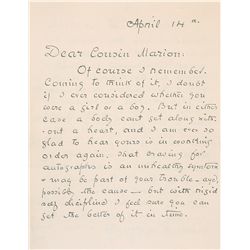 April 14th.
Dear Cousin Marion:
Of course I remember.
Coming to think of it, I doubt
if I ever considered whether you
were a girl or a boy. But in either
case a body can't get along with-
out a heart, and I am ever so
glad to hear yours is in working
order again. That craving for
autographs is an unhealthy symptom
may be part of your trouble - aye,
possibly the cause - but with rigid
discipline I feel sure you can
get the better of it in time.